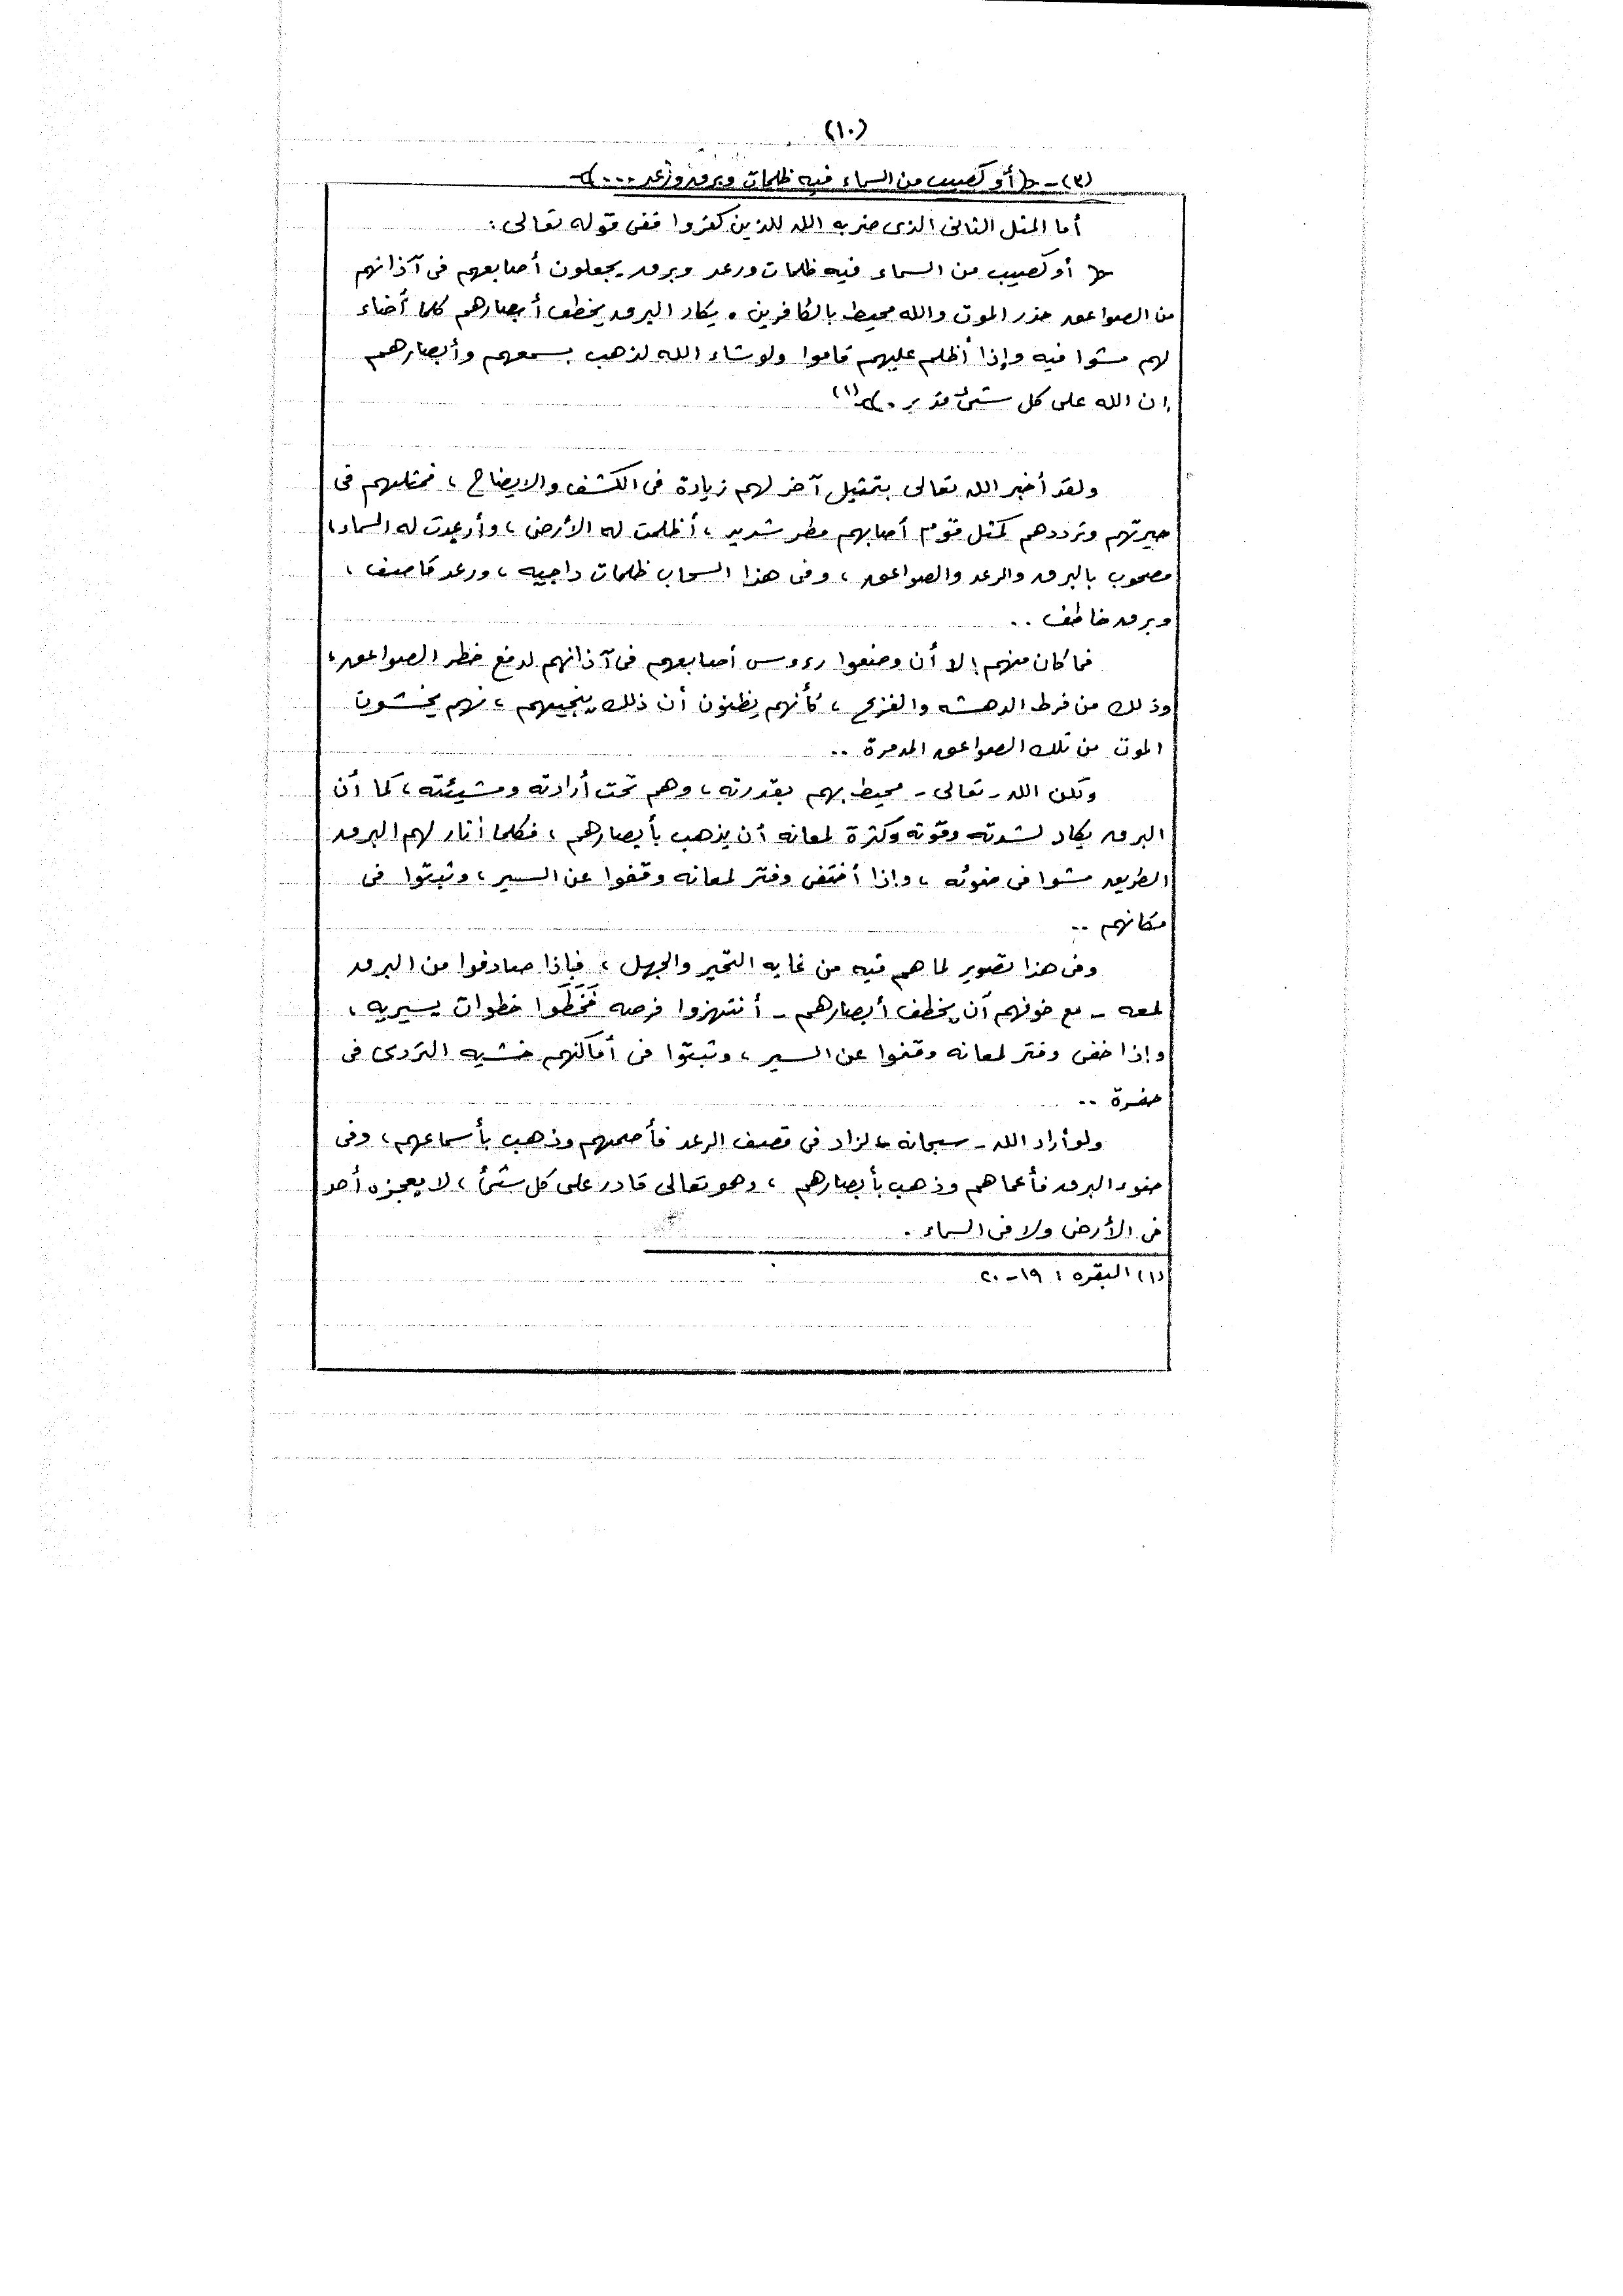 (١٠)
(٣) - ﴿ أو كصيب من السماء فيه ظلمات وبرق ورعد ... ﴾ -
أما المثل الثانى الذى ضربه الله للذين كفروا ففى قوله تعالى :
﴿ أو كصيب من السماء فيه ظلمات ورعد وبرق يجعلون أصابعهم فى آذانهم
من الصواعق حذر الموت والله محيط بالكافرين . يكاد البرق يخطف أبصارهم كلما أضاء
لهم مشوا فيه وإذا أظلم عليهم قاموا ولو شاء الله لذهب بسمعهم وأبصارهم
إن الله على كل شىء قدير . ﴾ (١)
ولقد أخبر الله تعالى بتمثيل آخر لهم زيادة فى الكشف والايضاح ، فمثلهم فى
حيرتهم وترددهم كمثل قوم أصابهم مطر شديد ، أظلمت له الأرض ، وأرعدت له السماء ،
مصحوب بالبرق والرعد والصواعق ، وفى هذا السحاب ظلمات داجيه ، ورعد قاصف ،
وبرق خاطف ..
فما كان منهم إلا أن وضعوا رءوس أصابعهم فى آذانهم لدفع خطر الصواعق ،
وذلك من فرط الدهشه والفزع ، كأنهم يظنون أن ذلك ينجيهم ، فهم يخشون
الموت من تلك الصواعق المدمرة ..
ولكن الله - تعالى - محيط بهم بقدرته ، وهم تحت أرادته ومشيئته ، كما أن
البرق يكاد لشدته وقوته وكثرة لمعانه أن يذهب بأبصارهم ، فكلما أنار لهم البرق
الطريق مشوا فى ضوئه ، وإذا أختفى وفتر لمعانه وقفوا عن السير ، وثبتوا فى
مكانهم ..
وفى هذا تصوير لما هم فيه من غايه التحير والجهل ، فإذا صادفوا من البرق
لمعه - مع خوفهم أن يخطف أبصارهم - أنتهزوا فرصه فَخَطَوا خطوات يسيريه ،
وإذا خفى وفتر لمعانه وقفوا عن السير ، وثبتوا فى أماكنهم خشيه التردى فى
حفرة ..
ولو أراد الله - سبحانه - لزاد فى قصف الرعد فأصمهم وذهب بأسماعهم ، وفى
ضوء البرق فأعماهم وذهب بأبصارهم ، وهو تعالى قادر على كل شئ ، لا يعجزه أحد
فى الأرض ولا فى السماء .
(١) البقره : ١٩-٢٠